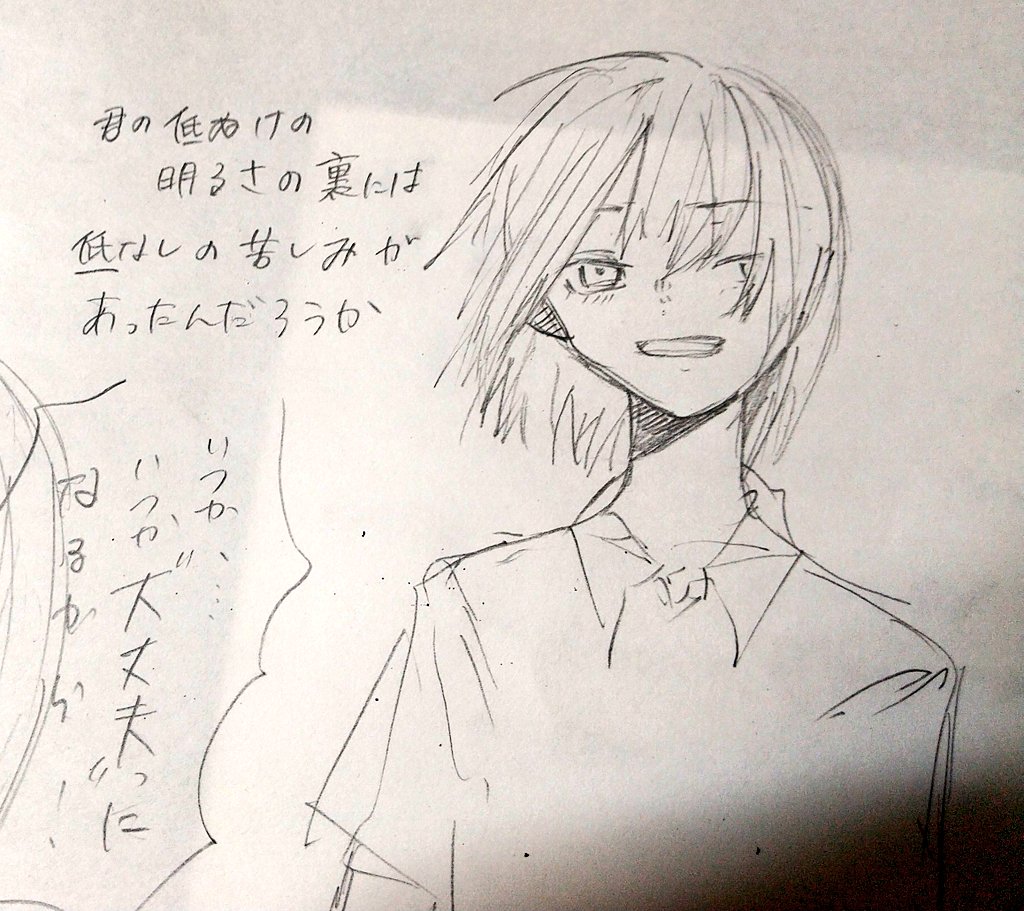 君の低ぬけの
明るさの裏には
低なしの苦しみが
あったんだろうか
いつか、…
いつか"大丈夫"に
なるから!